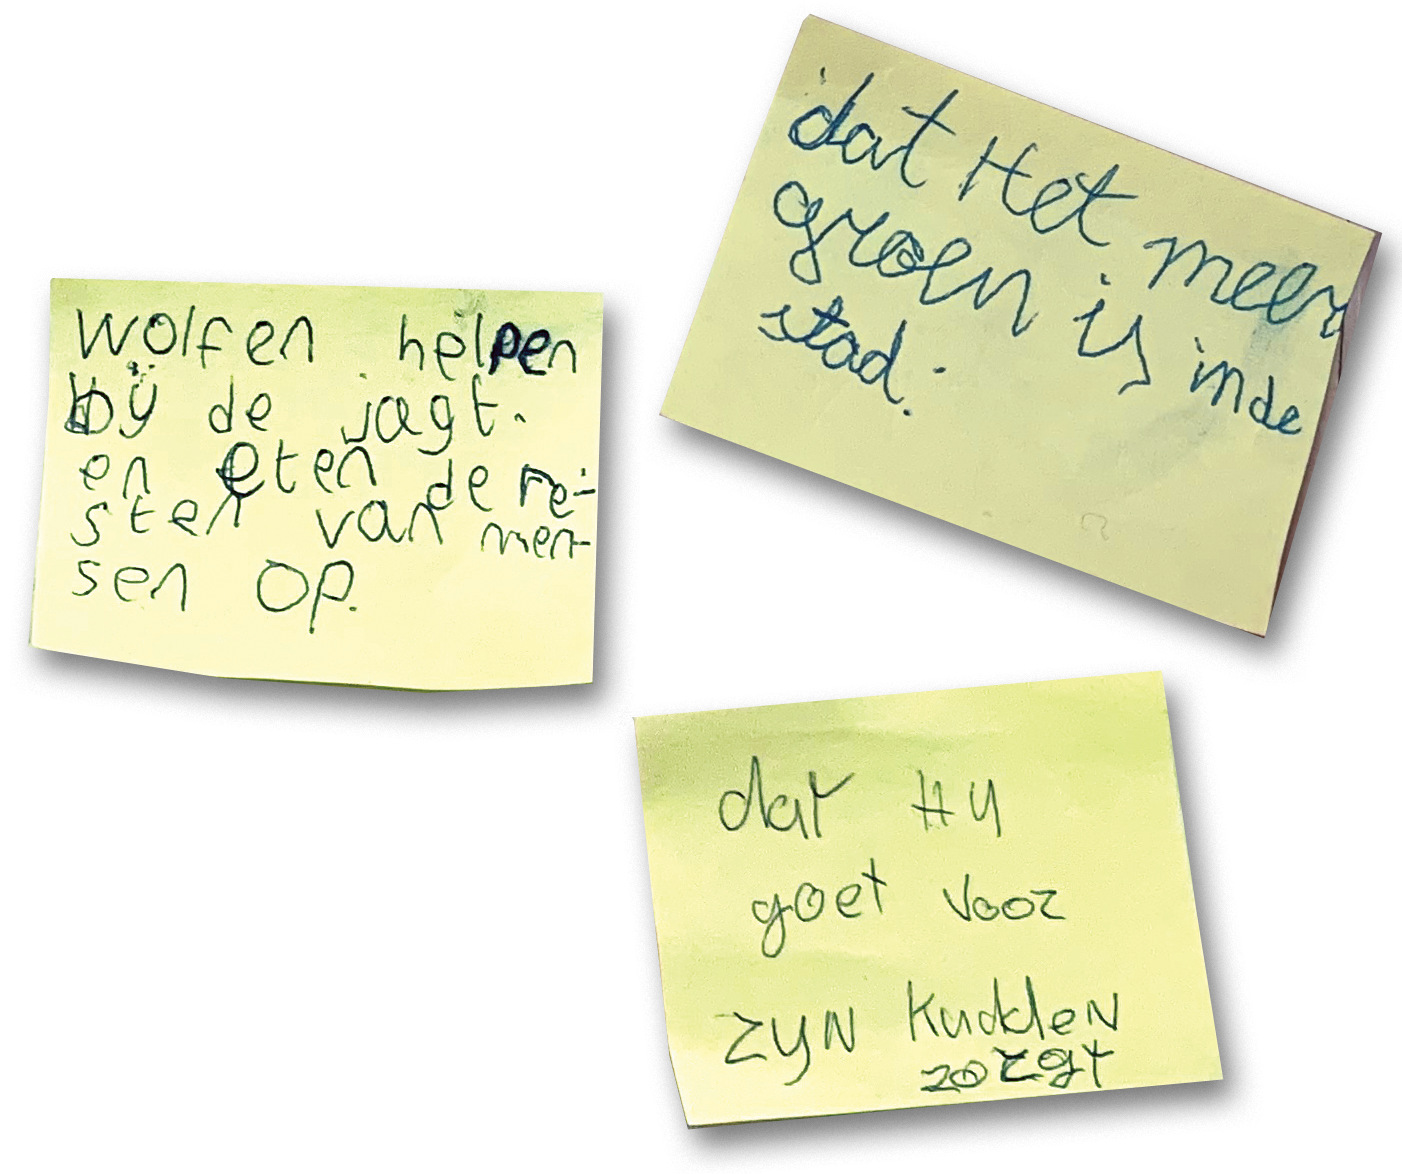 wolfen helpen
bij de jagt.
en eten de re-
sten van men-
sen op.
dat Het meer
groen is in de
stad.
dat Hy
goet voor
zyn kudden
zorgt